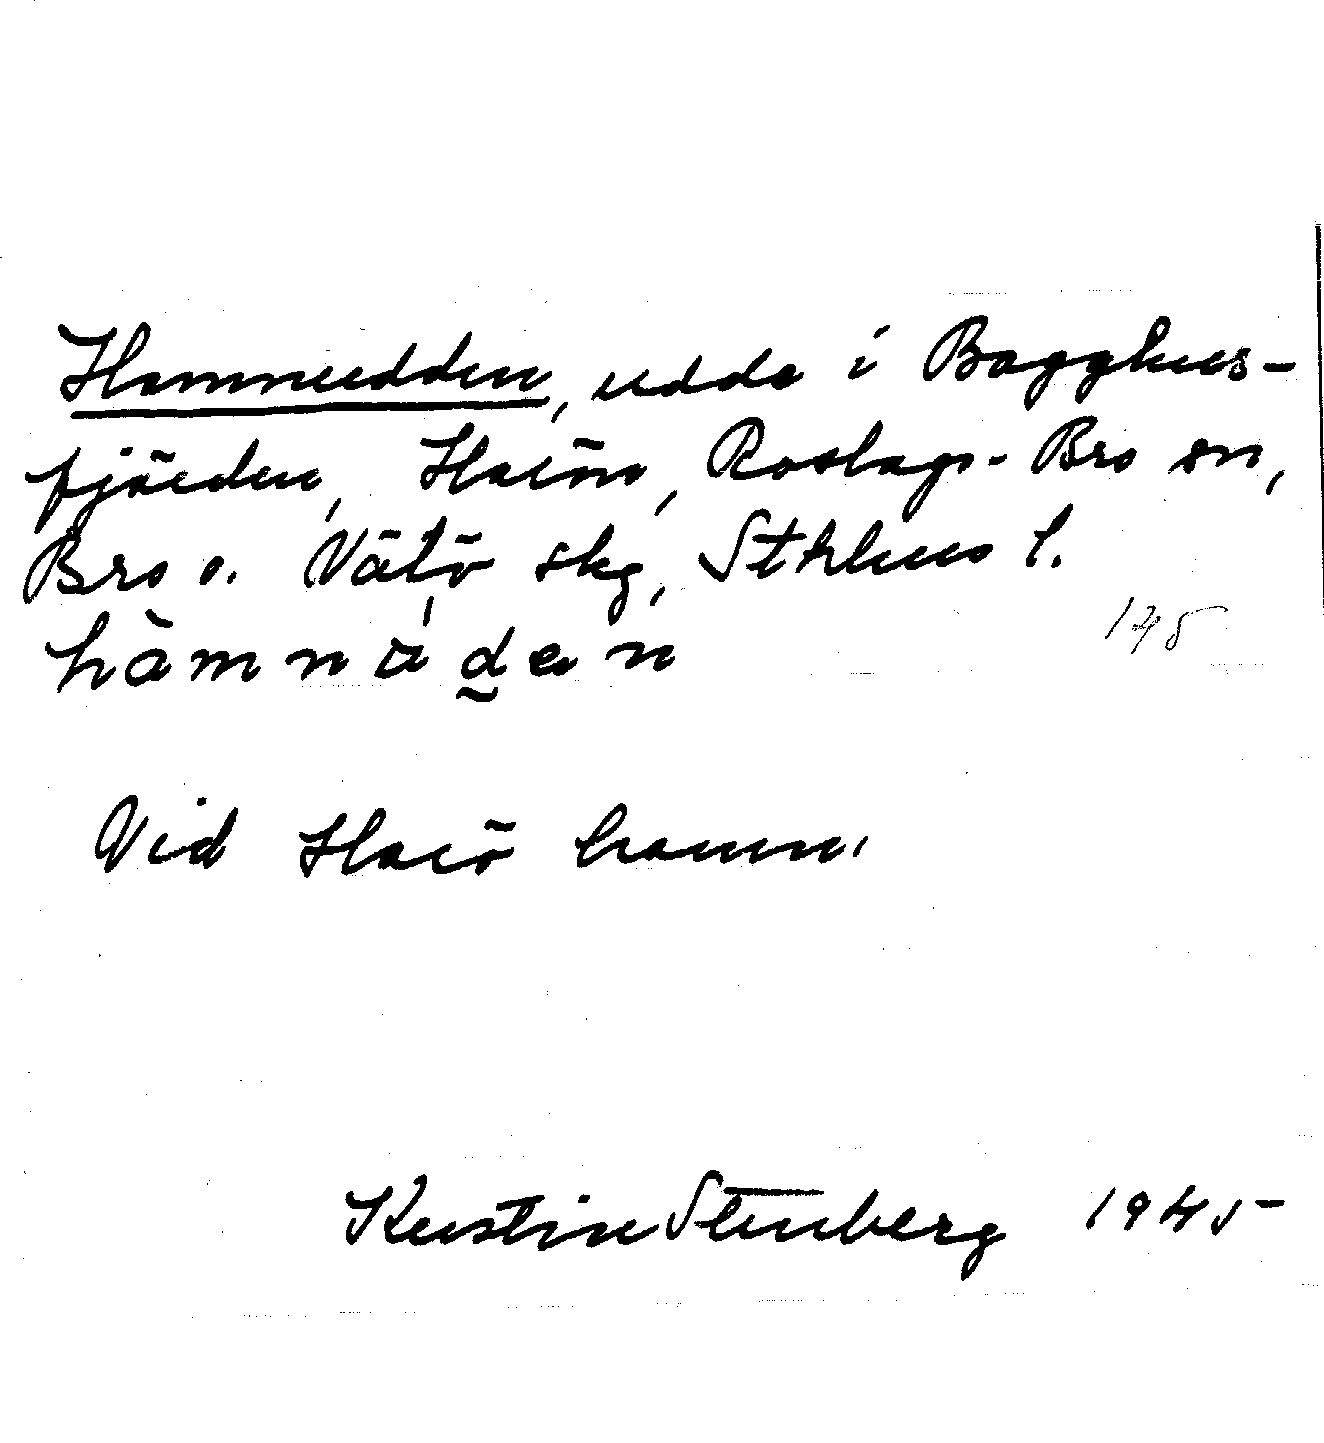 Hamnudden, udda i Bagghus-
fjärden, Harön, Roslags-Bro sn,
Bro o. Vätö skg, Sthlms l.
145
Vid Harö hamn.
Kerstin Stenberg 1945